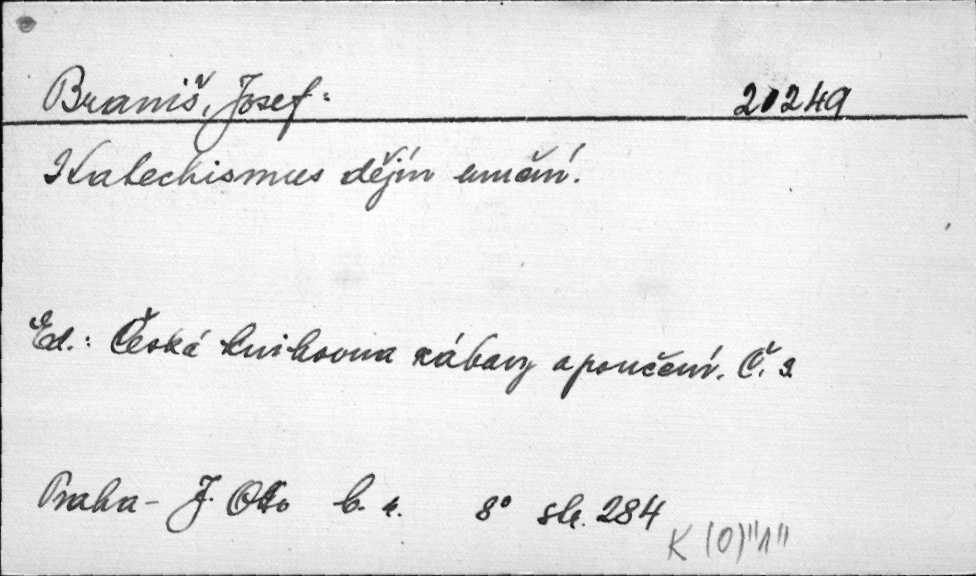 Braniš, Josef: 20249
Katechismus dějin umění.
Ed.: Česká knihovna zábavy a poučení. Č. 9.
Praha - J. Otto b. r. 8° str. 284
K (0) "1"